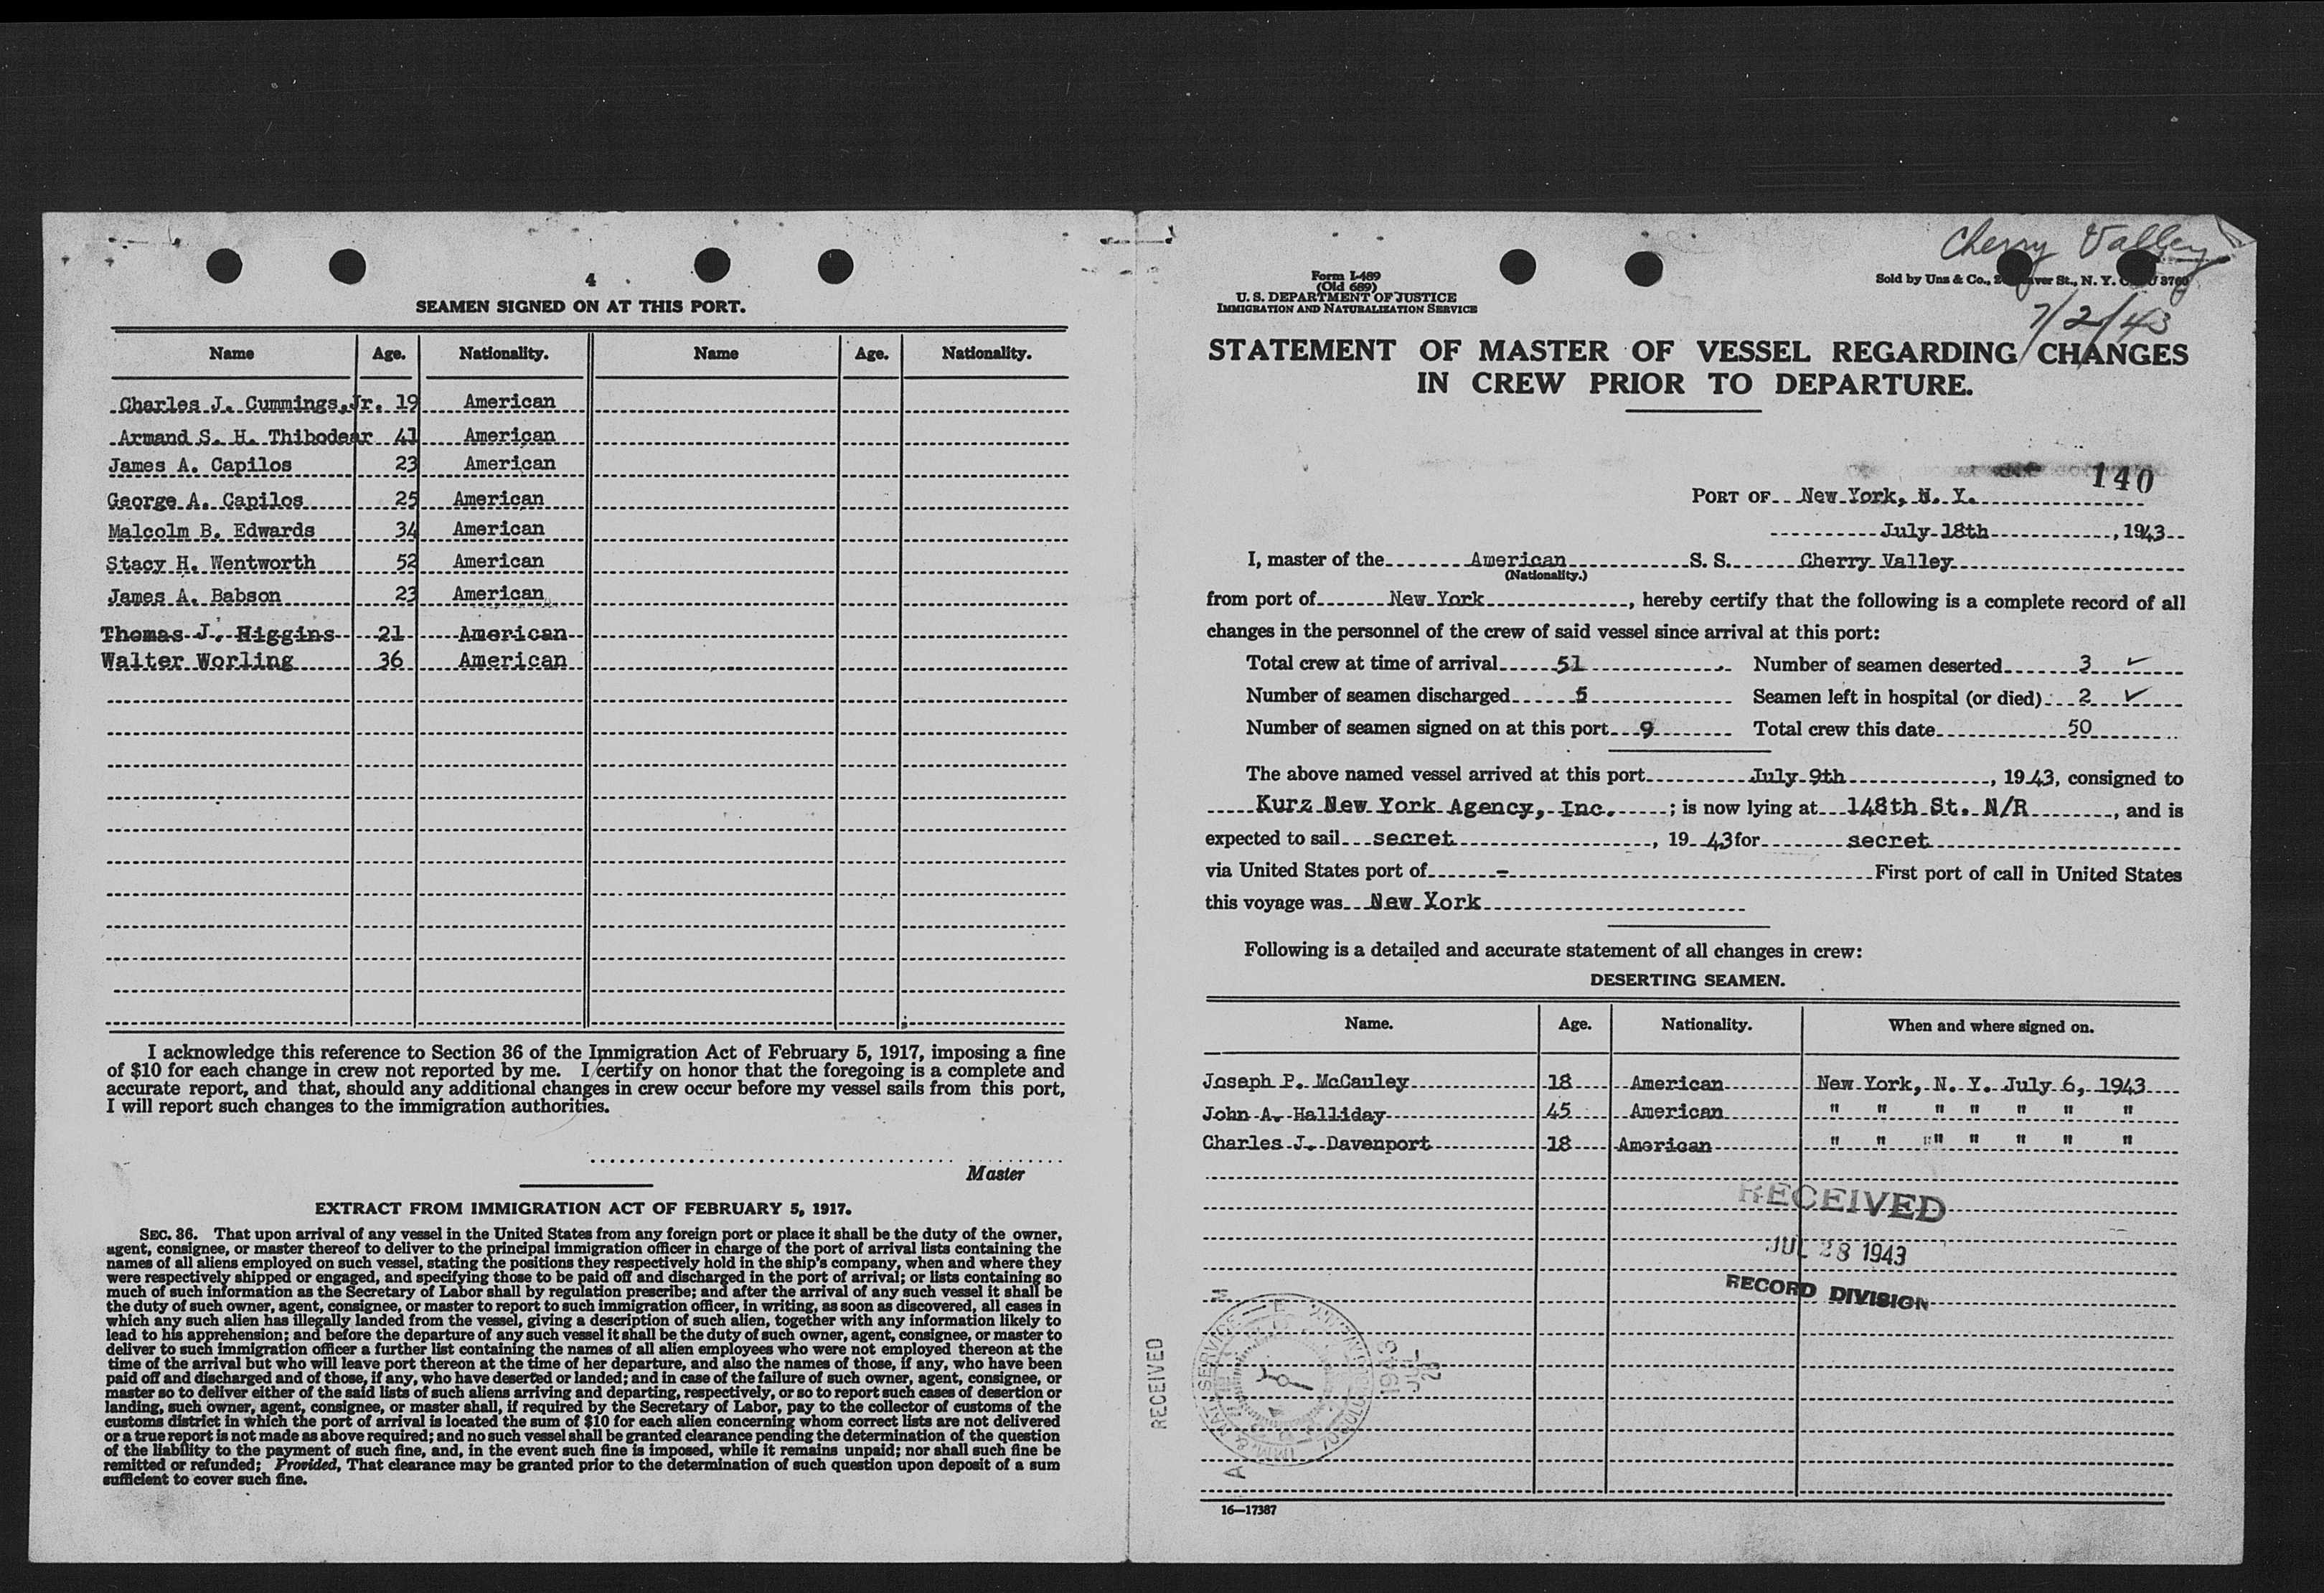 4
SEAMEN SIGNED ON AT THIS PORT.
Name Age. Nationality. Name Age. Nationality.
Charles J. Cummings, Jr. 19 American
Armand S. H. Thibodear 41 American
James A. Capilos 23 American
George A. Capilos 25 American
Malcolm B. Edwards 34 American
Stacy H. Wentworth 52 American
James A. Babson 23 American
Thomas J. Higgins 21 American
Walter Worling 36 American
I acknowledge this reference to Section 36 of the Immigration Act of February 5, 1917, imposing a fine
of $10 for each change in crew not reported by me. I certify on honor that the foregoing is a complete and
accurate report, and that, should any additional changes in crew occur before my vessel sails from this port,
I will report such changes to the immigration authorities.
Master
EXTRACT FROM IMMIGRATION ACT OF FEBRUARY 5, 1917.
SEC. 36. That upon arrival of any vessel in the United States from any foreign port or place it shall be the duty of the owner,
agent, consignee, or master thereof to deliver to the principal immigration officer in charge of the port of arrival lists containing the
names of all aliens employed on such vessel, stating the positions they respectively hold in the ship's company, when and where they
were respectively shipped or engaged, and specifying those to be paid off and discharged in the port of arrival; or lists containing so
much of such information as the Secretary of Labor shall by regulation prescribe; and after the arrival of any such vessel it shall be
the duty of such owner, agent, consignee, or master to report to such immigration officer, in writing, as soon as discovered, all cases in
which any such alien has illegally landed from the vessel, giving a description of such alien, together with any information likely to
lead to his apprehension; and before the departure of any such vessel it shall be the duty of such owner, agent, consignee, or master to
deliver to such immigration officer a further list containing the names of all alien employees who were not employed thereon at the
time of the arrival but who will leave port thereon at the time of her departure, and also the names of those, if any, who have been
paid off and discharged and of those, if any, who have deserted or landed; and in case of the failure of such owner, agent, consignee, or
master so to deliver either of the said lists of such aliens arriving and departing, respectively, or so to report such cases of desertion or
landing, such owner, agent, consignee, or master shall, if required by the Secretary of Labor, pay to the collector of customs of the
customs district in which the port of arrival is located the sum of $10 for each alien concerning whom correct lists are not delivered
or a true report is not made as above required; and no such vessel shall be granted clearance pending the determination of the question
of the liability to the payment of such fine, and, in the event such fine is imposed, while it remains unpaid; nor shall such fine be
remitted or refunded; Provided, That clearance may be granted prior to the determination of such question upon deposit of a sum
sufficient to cover such fine.
Cherry Valley
Form I-489
(Old 689)
U. S. DEPARTMENT OF JUSTICE
IMMIGRATION AND NATURALIZATION SERVICE
Sold by Unz & Co., St., N. Y.
7/2/43
STATEMENT OF MASTER OF VESSEL REGARDING CHANGES
IN CREW PRIOR TO DEPARTURE.
140
PORT OF New York, N. Y.
July 18th, 1943
I, master of the American S. S. Cherry Valley
(Nationality.)
from port of New York, hereby certify that the following is a complete record of all
changes in the personnel of the crew of said vessel since arrival at this port:
Total crew at time of arrival 51. Number of seamen deserted 3 ✓
Number of seamen discharged 5 Seamen left in hospital (or died) 2 ✓
Number of seamen signed on at this port 9 Total crew this date 50
The above named vessel arrived at this port July 9th, 1943, consigned to
Kurz New York Agency, Inc.; is now lying at 148th St. N/R, and is
expected to sail secret, 1943 for secret
via United States port of - First port of call in United States
this voyage was New York
Following is a detailed and accurate statement of all changes in crew:
DESERTING SEAMEN.
Name. Age. Nationality. When and where signed on.
Joseph P. McCauley 18 American New York, N. Y. July 6, 1943
John A. Halliday 45 American " " " " " " "
Charles J. Davenport 18 American " " " " " " "
RECEIVED
JUL 28 1943
RECORD DIVISION
RECEIVED
1943
JUL
28
16—17387